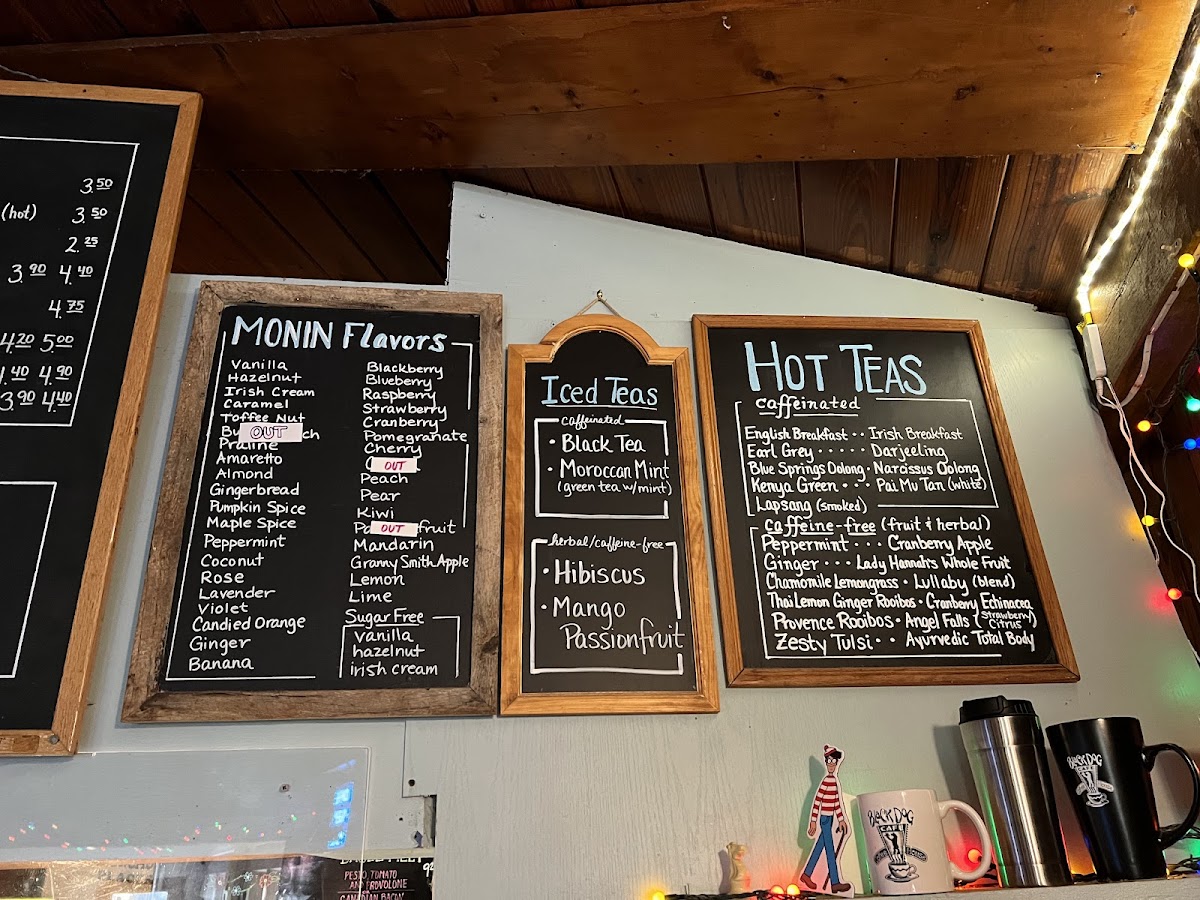 3.50
(hot) 3.50
2.25
3.90 4.40
4.75
4.20 5.00
4.40 4.90
3.90 4.40
MONIN Flavors
Vanilla
Hazelnut
Irish Cream
Caramel
Toffee Nut
OUT
Praline
Amaretto
Almond
Gingerbread
Pumpkin Spice
Maple Spice
Peppermint
Coconut
Rose
Lavender
Violet
Candied Orange
Ginger
Banana
Blackberry
Blueberry
Raspberry
Strawberry
Cranberry
Pomegranate
Cherry
OUT
Peach
Pear
Kiwi
Pa OUT fruit
Mandarin
Granny Smith Apple
Lemon
Lime
Sugar Free
Vanilla
hazelnut
irish cream
Iced Teas
caffeinated
• Black Tea
• Moroccan Mint
(green tea w/mint)
herbal/caffeine-free
• Hibiscus
• Mango
Passionfruit
HOT TEAS
caffeinated
English Breakfast • • Irish Breakfast
Earl Grey • • • • • Darjeeling
Blue Springs Oolong • Narcissus Oolong
Kenya Green • • • • Pai Mu Tan (white)
Lapsang (smoked)
caffeine-free (fruit & herbal)
Peppermint • • • Cranberry Apple
Ginger • • • Lady Hannah's Whole Fruit
Chamomile Lemongrass • Lullaby (blend)
Thai Lemon Ginger Rooibos • Cranberry Echinacea
Provence Rooibos • Angel Falls (Strawberry Citrus)
Zesty Tulsi • • Ayurvedic Total Body
BLACK DOG
CAFE
BLACK DOG
PESTO, TOMATO
AND PROVOLONE
CANADIAN BACON